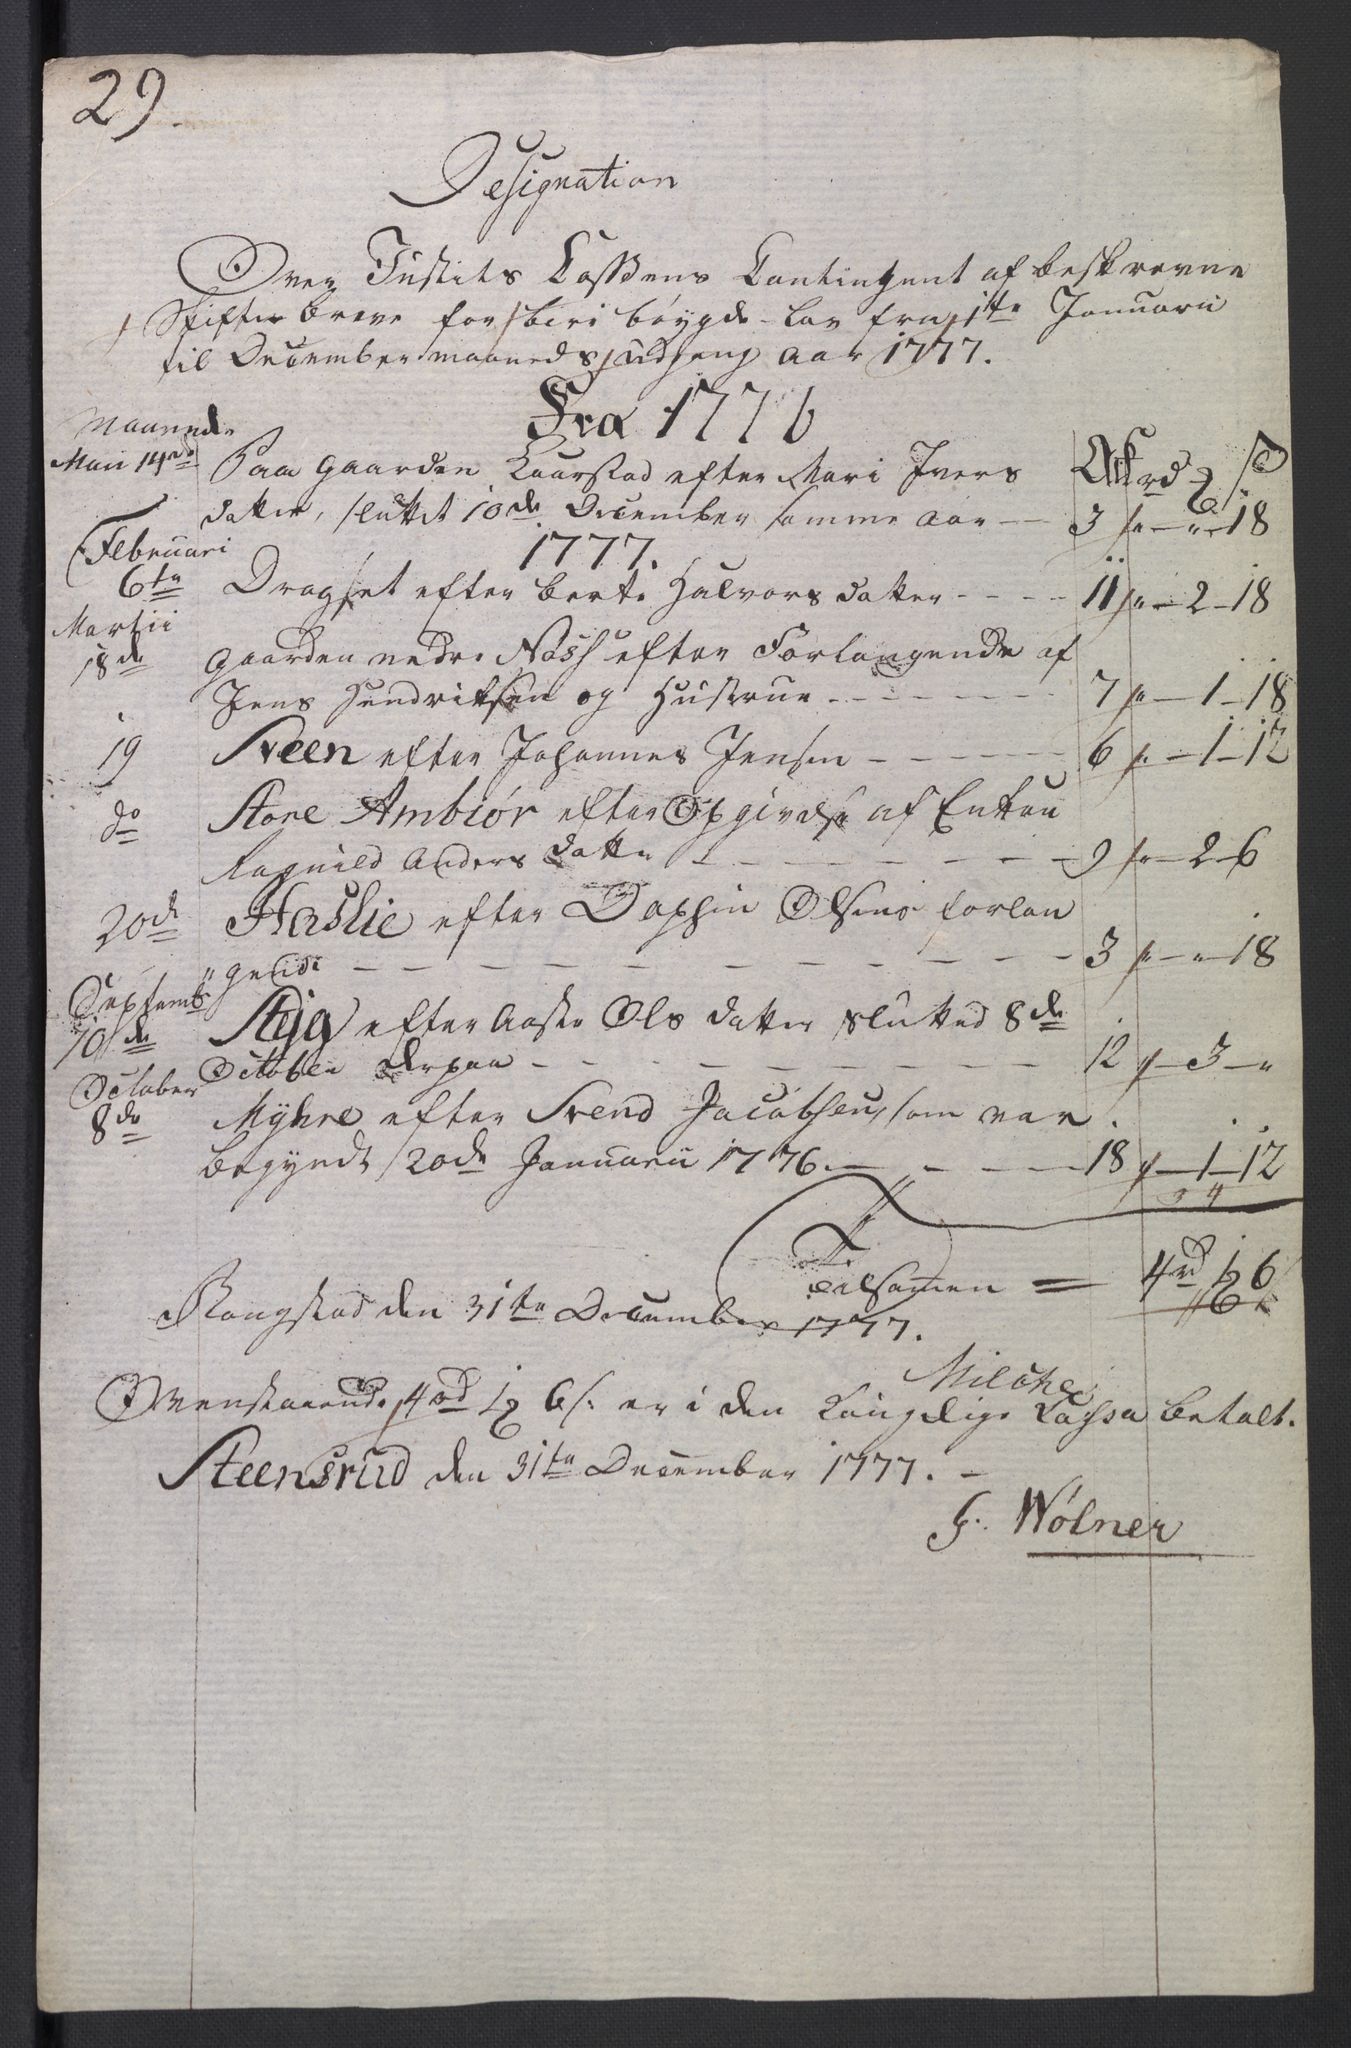 29.
Designation
Over Justits Cassens Contingent af beskrevne
Skifte breve for biri bøygde-lav fra 1te Januarii
til December maaneds udgang Aar 1777.
Fra 1776
Maaned.
Maii 14de Paa gaarden Kaarstad efter Mari Ivers Ark rd # s
datter, sluttet 10de December samme Aar — 3 " — " — 18
1777.
Februari
6te Dragset efter berte Halvors datter - - - - 11 " — 2 — 18
Martii
18de gaarden nedre Næss efter Forlangende af
Jens Hendriksen og Hustrue - - - - 7 " — 1 — 18
19 Sveen efter Johannes Jensen - - - - 6 " — 1 — 12
do Store Ambiør efter Opgivelse af Enken
Ragnild Anders datter - - - - 9 " — 2 — 6
20de Haslie efter Dophin Olsens forlan
gende - - - - 3 " — " — 18
Septemb
10de Stya efter Aasse Ols datter slutted 8de
Octobr derpaa - - - - 12 " — 3 — "
October
8de Myhre efter Svend Jacobsen, som var
begyndt 20de Januarii 1776. - - - - 18 " — 1 — 12
3 4
Tilsamen = 4rd 1# 6s
Rongstad den 31te December 1777.
Ovenstaaende 4rd 1# 6s. er i den Kongelige Militaire Cassa betalt.
Steensrud den 31te December 1777. -
G. Wølner